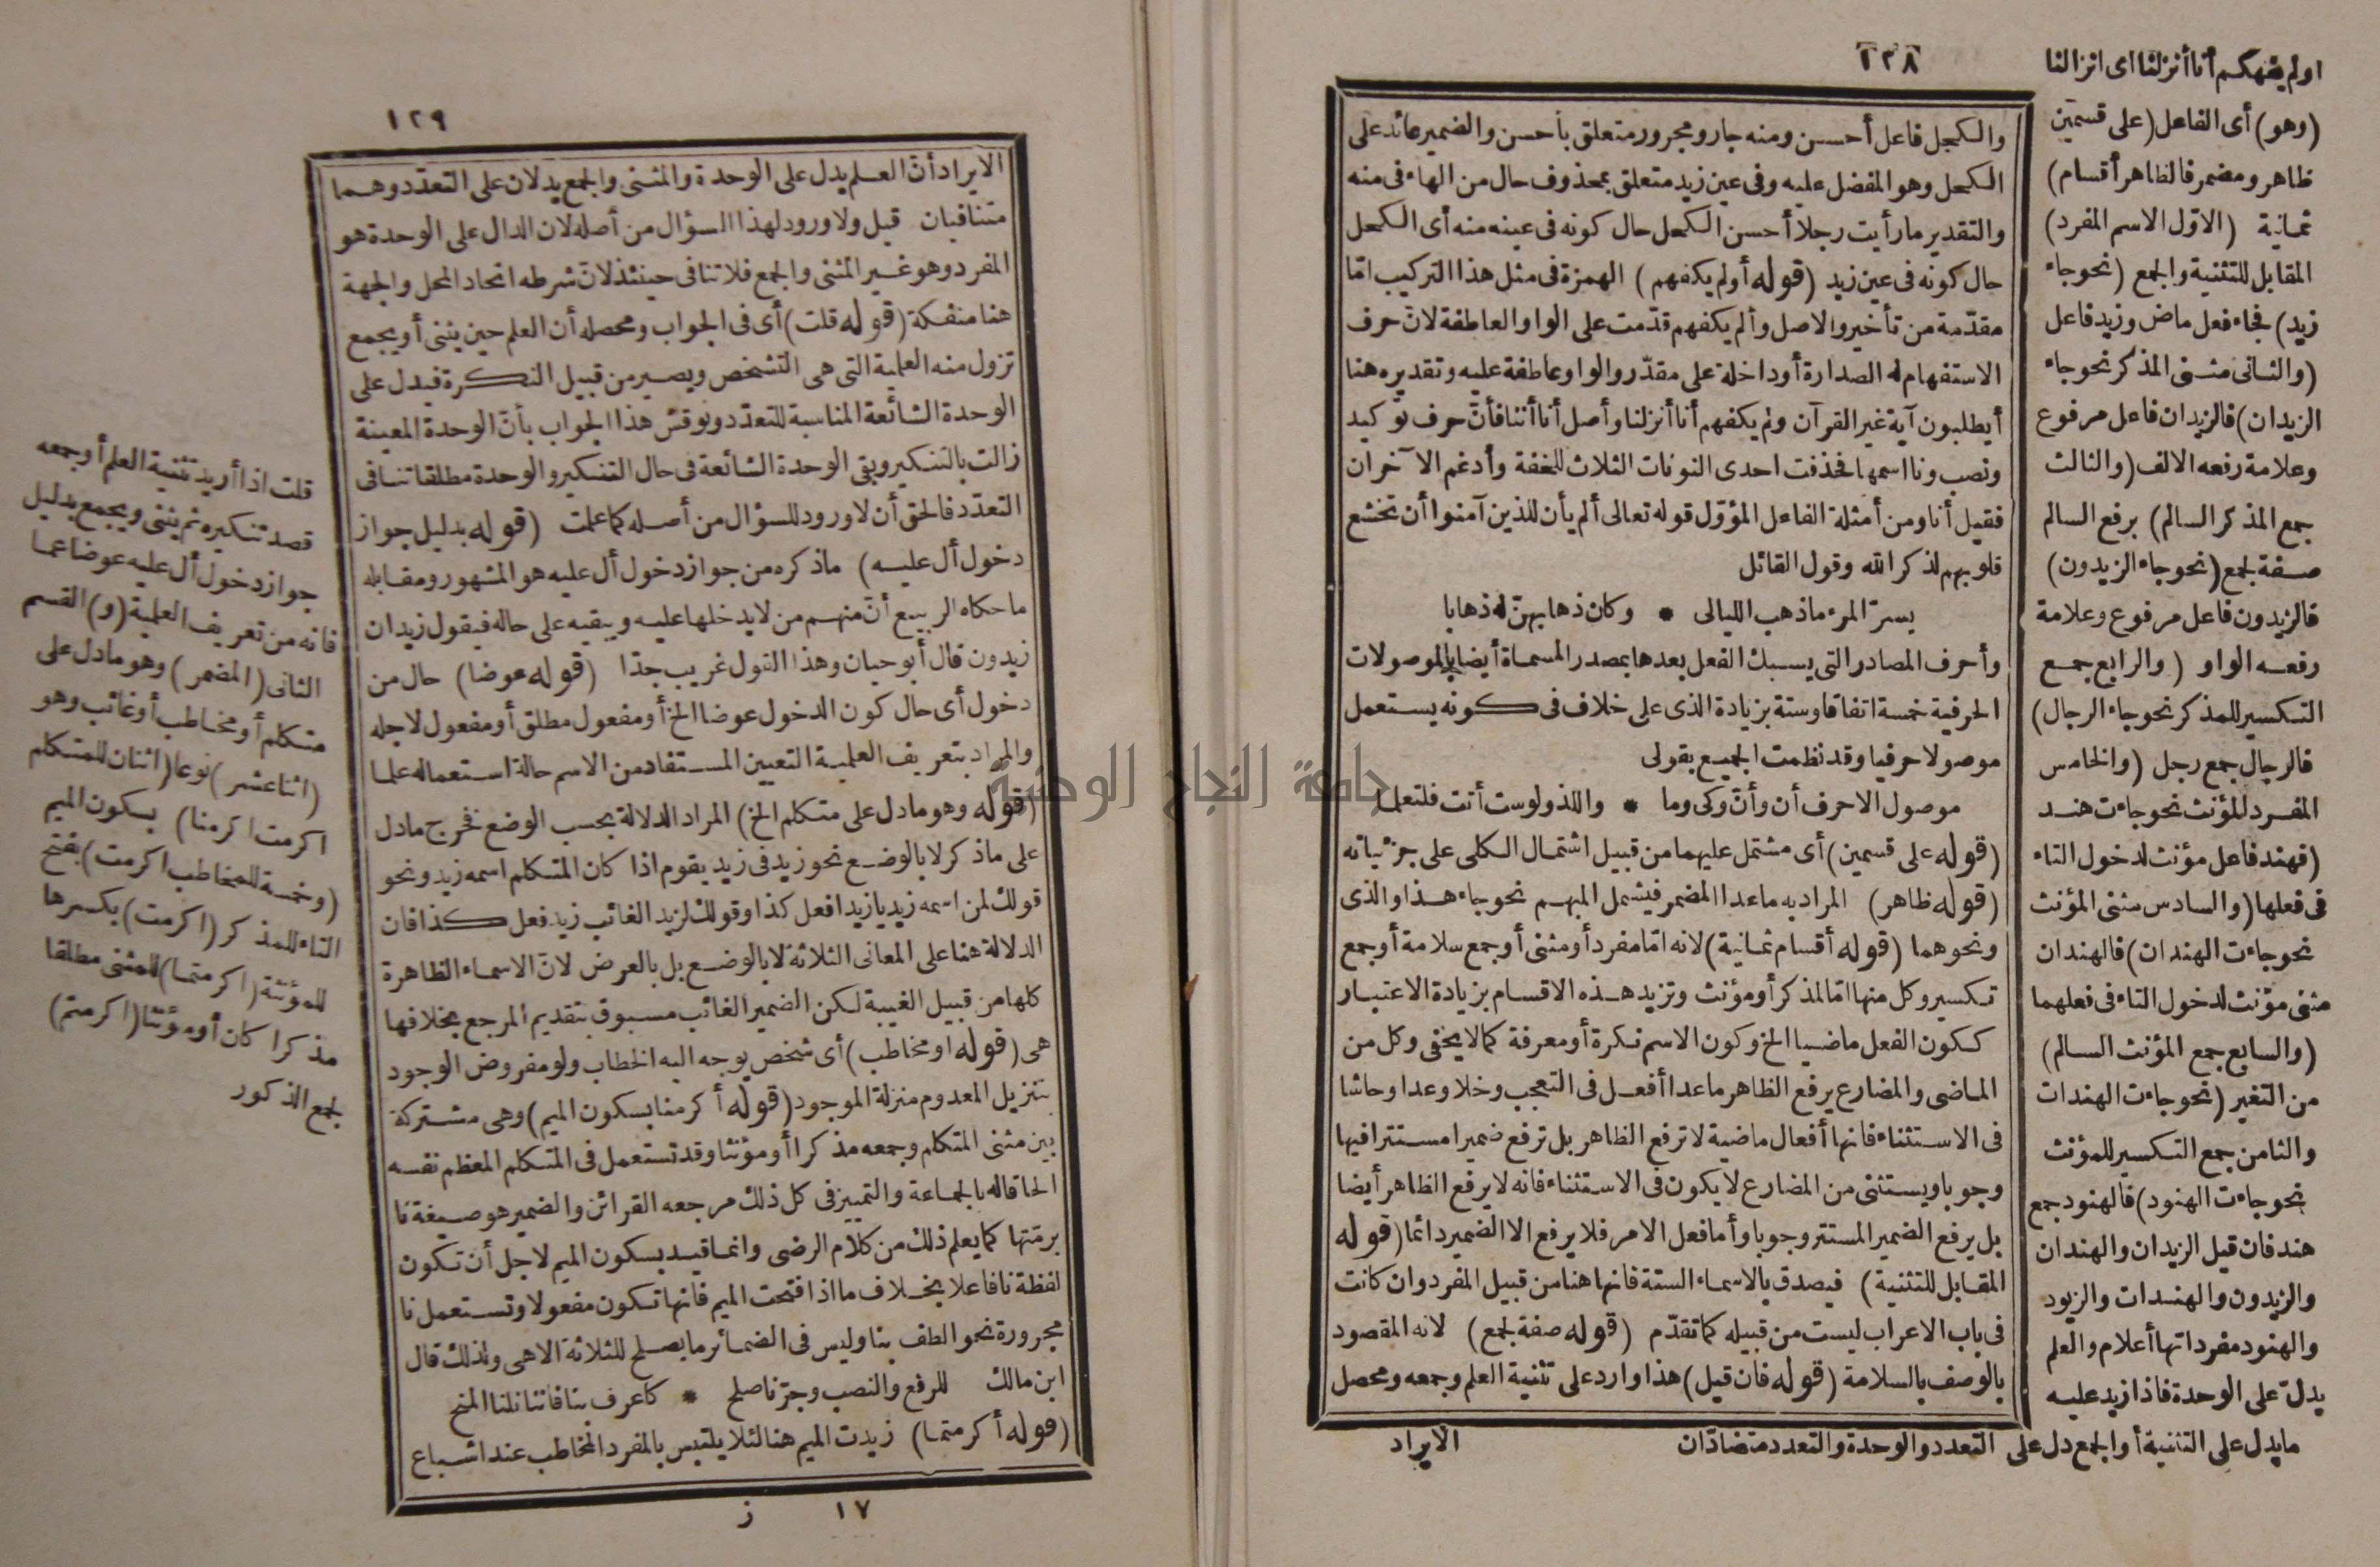 ١٢٨
اولم يكفهم أنا أنزلنا اى انزالنا
(وهو) أى الفاعل (على قسمين
ظاهر ومضمر فالظاهر أقسام)
ثمانية (الاوّل الاسم المفرد)
المقابل للتثنية والجمع (نحو جاء
زيد) فجاء فعل ماض وزيد فاعل
(والثانى مثنى المذكر نحو جاء
الزيدان) فالزيدان فاعل مرفوع
وعلامة رفعه الالف (والثالث
جمع المذكر السالم) برفع السالم
صفة لجمع (نحو جاء الزيدون)
فالزيدون فاعل مرفوع وعلامة
رفعه الواو (والرابع جمع
التكسير للمذكر نحو جاء الرجال)
فالرجال جمع رجل (والخامس
المفرد للمؤنث نحو جاءت هند
(فهند فاعل مؤنث لدخول التاء
فى فعلها (والسادس مثنى المؤنث
نحو جاءت الهندان) فالهندان
مثنى مؤنث لدخول التاء فى فعلهما
(والسابع جمع المؤنث السالم)
من التغير (نحو جاءت الهندات
والثامن جمع التكسير للمؤنث
نحو جاءت الهنود) فالهنود جمع
هند فان قيل الزيدان والهندان
والزيدون والهندات والزيود
والهنود مفرداتها أعلام والعلم
يدلّ على الوحدة فاذا زيد عليه
مايدل على التثنية أو الجمع دل على التعدد والوحدة والتعدد متضادّان
والكحل فاعل أحسن ومنه جار ومجرور متعلق بأحسن والضمير عائد على
الكحل وهو المفضل عليه وفى عين زيد متعلق بمحذوف حال من الهاء فى منه
والتقدير ما رأيت رجلا أحسن الكحل حال كونه فى عينه منه أى الكحل
حال كونه فى عين زيد (قوله أولم يكفهم) الهمزة فى مثل هذا التركيب امّا
مقدّمة من تأخير والاصل وألم يكفهم قدّمت على الواو العاطفة لانّ حرف
الاستفهام له الصدارة أو داخلة على مقدّر والواو عاطفة عليه وتقديره هنا
أيطلبون آية غير القرآن ولم يكفهم أنا أنزلنا وأصل أنا أننا فأنّ حرف توكيد
ونصب ونا اسمها فحذفت احدى النونات الثلاث للخفة وأدغم الآخران
فقيل أنا ومن أمثلة الفاعل المؤوّل قوله تعالى ألم يأن للذين آمنوا أن تخشع
قلوبهم لذكر الله وقول القائل
يسرّ المرء ماذهب الليالى * وكان ذهابهنّ له ذهابا
وأحرف المصادر التى يسبك الفعل بعدها بمصدر المسماة أيضا بالموصولات
الحرفية خمسة اتفاقا وستة بزيادة الذى على خلاف فى كونه يستعمل
موصولا حرفيا وقد نظمت الجميع بقولى
موصول الاحرف أن وأنّ وكى وما * واللذ ولو ست أتت فلتعلما
(قوله على قسمين) أى مشتمل عليهما من قبيل اشتمال الكلى على جزئياته
(قوله ظاهر) المراد به ماعدا المضمر فيشمل المبهم نحو جاء هذا والذى
ونحوهما (قوله أقسام ثمانية) لانه امّا مفرد أو مثنى أو جمع سلامة أو جمع
تكسير وكل منها امّا لمذكر أو مؤنث وتزيد هذه الاقسام بزيادة الاعتبار
ككون الفعل ماضيا الخ وكون الاسم نكرة أو معرفة كمالا يخفى وكل من
الماضى والمضارع يرفع الظاهر ماعدا أفعل فى التعجب وخلا وعدا وحاشا
فى الاستثناء فانها أفعال ماضية لا ترفع الظاهر بل ترفع ضميرا مستترا فيها
وجوبا ويستثنى من المضارع لا يكون فى الاستثناء فانه لا يرفع الظاهر أيضا
بل يرفع الضمير المستتر وجوبا وأما فعل الامر فلا يرفع الا الضمير دائما (قوله
المقابل للتثنية) فيصدق بالاسماء الستة فانها هنا من قبيل المفرد وان كانت
فى باب الاعراب ليست من قبيله كما تقدّم (قوله صفة لجمع) لانه المقصود
بالوصف بالسلامة (قوله فان قيل) هذا وارد على تثنية العلم وجمعه ومحصل
الايراد
١٢٩
الايراد أنّ العلم يدل على الوحدة والمثنى والجمع يدلان على التعدّد وهما
متنافيان قيل ولا ورود لهذا السؤال من أصله لان الدال على الوحدة هو
المفرد وهو غير المثنى والجمع فلا تنافى حينئذ لانّ شرطه اتحاد المحل والجهة
هنا منفكة (قوله قلت) أى فى الجواب ومحصله أن العلم حين يثنى أو يجمع
تزول منه العلمية التى هى التشخص ويصير من قبيل النكرة فيدل على
الوحدة الشائعة المناسبة للتعدّد ونوقش هذا الجواب بأنّ الوحدة المعينة
زالت بالتنكير وبقى الوحدة الشائعة فى حال التنكير والوحدة مطلقا تنافى
التعدّد فالحق أن لا ورود للسؤال من أصله كما علمت (قوله بدليل جواز
دخول أل عليه) ماذكره من جواز دخول أل عليه هو المشهور ومقابله
ماحكاه الربيع أنّ منهم من لا يدخلها عليه ويبقيه على حاله فيقول زيدان
زيدون قال أبو حيان وهذا القول غريب جدّا (قوله عوضا) حال من
دخول أى حال كون الدخول عوضا الخ أو مفعول مطلق أو مفعول لاجله
والمراد بتعريف العلمية التعيين المستفاد من الاسم حالة استعماله علما
(قوله وهو مادل على متكلم الخ) المراد الدلالة بحسب الوضع فخرج مادل
على ماذكر لا بالوضع نحو زيد فى زيد يقوم اذا كان المتكلم اسمه زيد ونحو
قولك لمن اسمه زيد يا زيد افعل كذا وقولك لزيد الغائب زيد فعل كذا فان
الدلالة هنا على المعانى الثلاثة لا بالوضع بل بالعرض لانّ الاسماء الظاهرة
كلها من قبيل الغيبة لكن الضمير الغائب مسبوق بتقديم المرجع بخلافها
هى (قوله او مخاطب) أى شخص يوجه اليه الخطاب ولو مفروض الوجود
بتنزيل المعدوم منزلة الموجود (قوله أكرمنا بسكون الميم) وهى مشتركة
بين مثنى المتكلم وجمعه مذكرا أو مؤنثا وقد تستعمل فى المتكلم المعظم نفسه
الحاقاله بالجماعة والتمييز فى كل ذلك مرجعه القرائن والضمير هو صيغة نا
برمّتها كما يعلم ذلك من كلام الرضى وانما قيد بسكون الميم لاجل أن تكون
لفظة نا فاعلا بخلاف ما اذا فتحت الميم فانها تكون مفعولا وتستعمل نا
مجرورة نحو الطف بنا وليس فى الضمائر ما يصلح للثلاثة الا هى ولذلك قال
ابن مالك للرفع والنصب وجرّ نا صلح * كاعرف بنا فاننا نلنا المنح
(قوله أكرمتما) زيدت الميم هنا لئلا يلتبس بالمفرد المخاطب عند اشباع
قلت اذا أريد تثنية العلم أو جمعه
قصد تنكيره ثم يثنى ويجمع بدليل
جواز دخول أل عليه عوضا عما
فاته من تعريف العلمية (و) القسم
الثانى (المضمر) وهو مادل على
متكلم أو مخاطب أو غائب وهو
(اثنا عشر) نوعا (اثنان للمتكلم
اكرمت اكرمنا) بسكون الميم
(وخمسة للمخاطب اكرمت) بفتح
التاء للمذكر (اكرمت) بكسرها
للمؤنثة (اكرمتما) للمثنى مطلقا
مذكرا كان أو مؤنثا (اكرمتم)
لجمع الذكور
١٧ ز
جامعة النجاح الوطنية